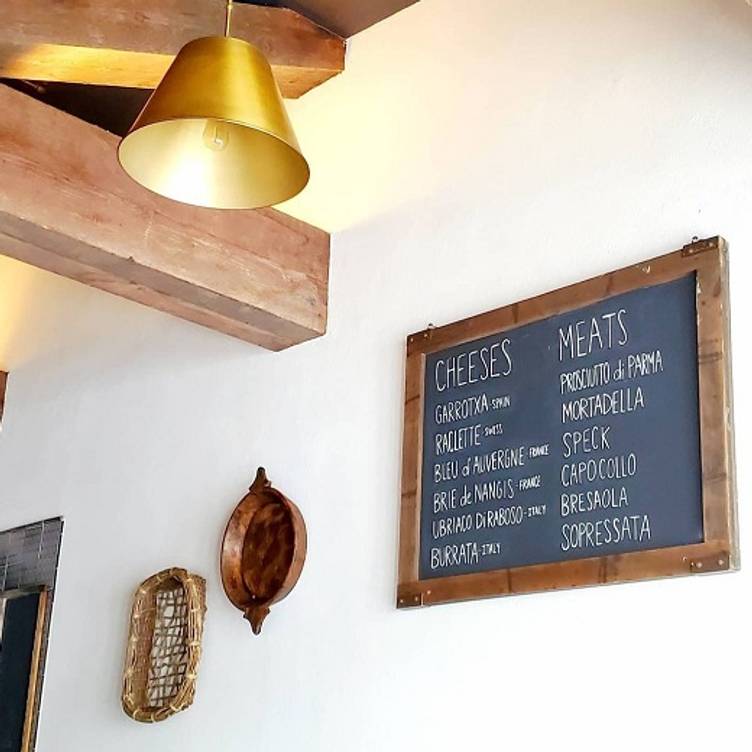 CHEESES
GARROTXA-SPAIN
RACLETTE-SWISS
BLEU d'AUVERGNE-FRANCE
BRIE de NANGIS-FRANCE
UBRIACO Di RABOSO-ITALY
BURRATA-ITALY
MEATS
PROSCIUTTO di PARMA
MORTADELLA
SPECK
CAPOCOLLO
BRESAOLA
SOPRESSATA